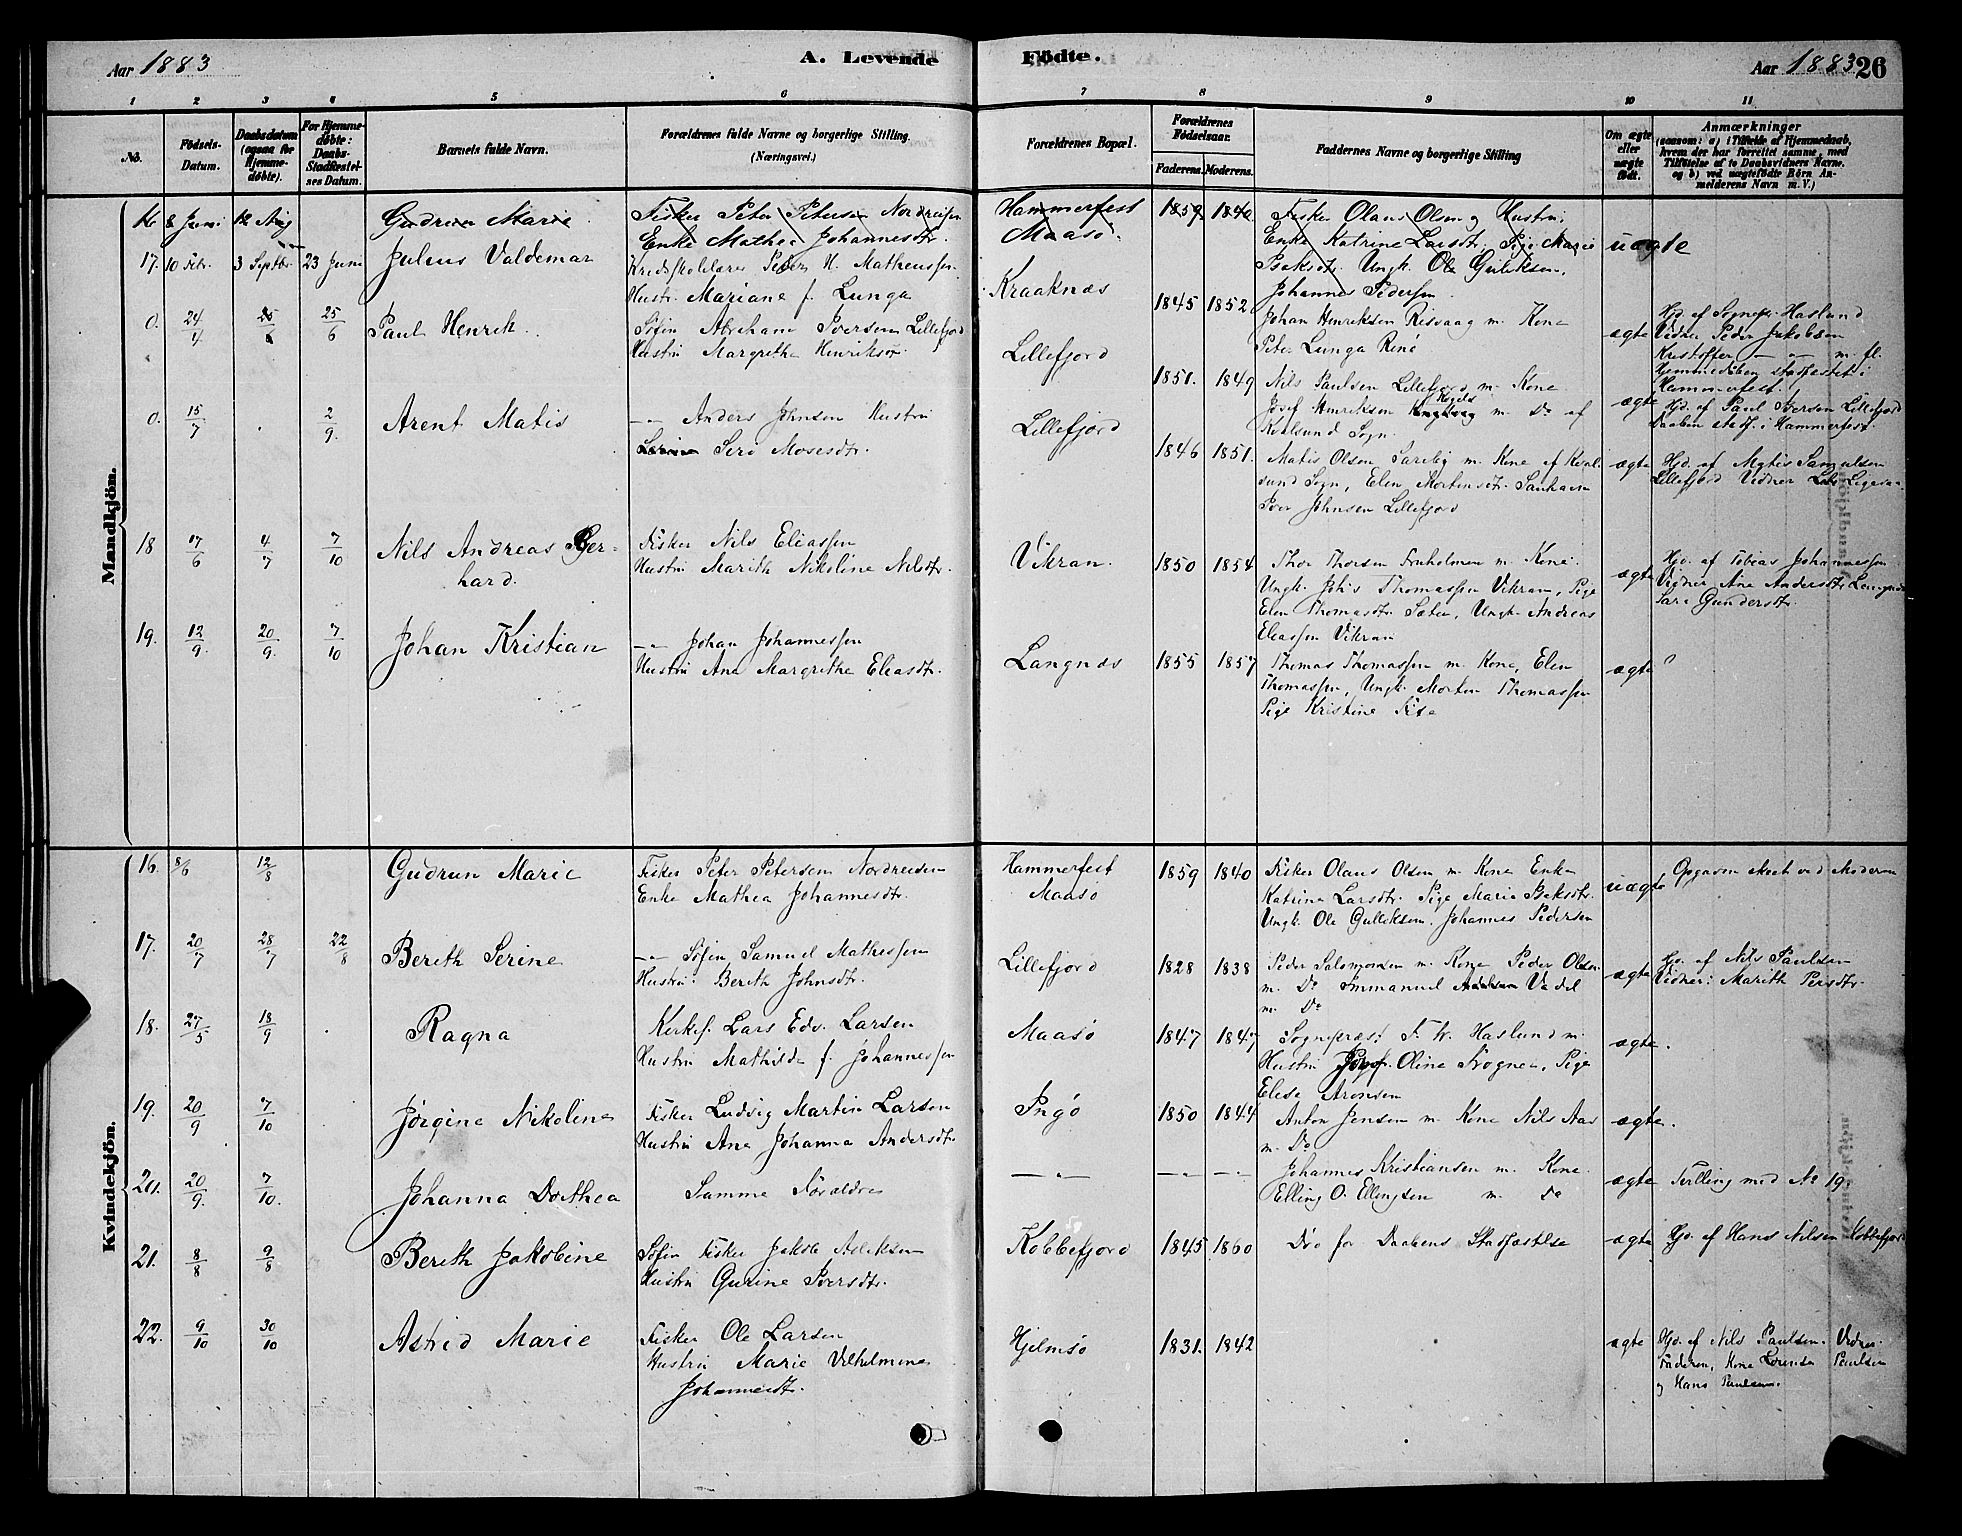 Aar 1883
A. Levende
Fødte.
Aar 1883
26
1 2 3 4 5 6 7 8 9 10 11
No.
Fødsels-
Datum.
Daabsdatum
(ogsaa for
Hjemme-
døbte).
For Hjemme-
døbte:
Daabs-
Stadfæstel-
ses Datum.
Barnets fulde Navn.
Forældrenes fulde Navne og borgerlige Stilling.
(Næringsvei.)
Forældrenes Bopæl.
Forældrenes
Fødselsaar.
Faderens. Moderens.
Faddernes Navne og borgerlige Stilling
Om ægte
eller
uægte
født.
Anmærkninger
(saasom: a) i Tilfælde af Hjemmedaab,
hvem der har forrettet samme, med
Tilføielse af to Daabsvidners Navne.
og b) ved uægtefødte Børn An-
melderens Navn m. V.)
Mandkjøn.
16 8 Juni 12 Aug
Gudrun Marie
Fisker Peter Petersen Nordreisen
Enke Mathea Johannesdtr.
Hammerfest
Maasø.
1859 1840
Fisker Olaus Olsen og Hustru,
Enke Katrine Larsdtr. Pige Marie
Isaksdtr. Ungk. Ole Gulliksen,
Johannes Pedersen
uægte
17. 10 Febr. 3 Septbr. 23 Juni
Julius Valdemar
Kredsskolelærer Peder H. Matheussen
Hustr. Mariane f. Lunga
Kraaknæs
1845 1852
Johan Henriksen Risvaag m. Kone
Peter Lunga Renø
ægte
Hjd. af Sognepr. Haslund
Vidner Peder Jakobsen
Kristoffer — " — m. fl.
0. 24/4 25/6 25/6
Paul Henrik.
Søfin Abraham Iversen Lillefjord
Hustru Margrethe Henriksdtr.
Lillefjord
1851. 1849
Nils Paulsen Lillefjord m. Kone
Josef Henriksen m. Do af
Kvalsund Sogn.
ægte
Hjemmedaaben stadfestet i
Hammerfest
Hjd. af Paul Iversen Lillefjord
Daaben stadf. i Hammerfest.
0. 15/7 2/9.
Arent Matis
— " — Anders Johnsen Hustru
Siri Mosesdtr.
Lillefjord
1846 1851.
Matis Olsen Sareby m. Kone af Kval-
sund Sogn, Elen Mortensdtr.
Iver Johnsen Lillefjord
ægte
Hjd. af Matis Samulsen
Lillefjord Vidner
18 17/6 4/7 7/10
Nils Andreas Ger-
hard.
Fisker Nils Eliassen
Hustru Marith Nikoline Nilsdtr.
Vikran.
1850 1854
Thor Thorsen Fruholmen m. Kone.
Ungk. Johs Thomassen Vikran, Pige
Elen Thomasdtr. Sæter, Ungk. Andreas
Eliassen Vikran
ægte
Hjd. af Tobias Johannessen
Vidner Ane Andersdtr. Langnæs
Sara Gundersdtr.
19. 12/9. 20/9. 7/10
Johan Kristian
— " — Johan Johannessen
Hustru Ana Margrethe Eliasdtr.
Langnæs
1855 1857
Thomas Thomassen m. Kone, Elen
Thomassen, Ungk. Morten Thomassen
Pige Kristine
ægte
Kvindekjøn.
16. 8/6 12/8
Gudrun Marie
Fisker Peter Petersen Nordreisen
Enke Mathea Johannesdtr.
Hammerfest
Maasø
1859 1840
Fisker Olaus Olsen m. Kone Enke
Katrine Larsdtr. Pige Marie Isaksdtr.
Ungk. Ole Gulliksen. Johannes Pedersen
uægte
Opgaven skeet ved Moderen
17. 20/7 28/7 22/8
Bereth Serine
— " — Søfin, Samuel Mathessen
Hustru. Bereth Johnsdtr.
Lillefjord
1828 1838
Peder Salomonsen m. Kone Peder Olsen
m. Do Immanuel Vadel
m. Do
ægte
Hjd. af Nils Paulsen
Vidner: Marith Persdtr.
18. 27/5 18/9
Ragna
Kirkes. Lars Edv. Larsen
Hustru Mathilde f. Johannessen
Maasø
1847 1847
Sognepræst F. W. Haslund m.
Hustru Oline Trogner, Pige
Elise Aronsen
ægte.
19. 20/9 7/10
Jørgine Nikoline
Fisker Ludvig Martin Larsen
Hustru Ana Johanna Andersdtr
Ingø
1850 1844
Anton Jensen m. Kone Nils Aas
m. Do
ægte.
20. 20/9. 7/10.
Johanna Dorthea
Samme Forældre
— " — — " — — " —
Johannes Kristiansen m. Kone.
Elling O. Ellingsen m. Do
ægte
Tvilling med No 19.
21. 8/8 9/8
Bereth Jakobine
Søfin Fisker Jakob Aslaksen
Hustru Gurine Iversdtr.
Kobbefjord
1845 1860
Død før Daabens Stadfæstelse
ægte
Hjd. af Hans Nilsen Kobbefjord
22. 9/10 30/10
Astrid Marie
Fisker Ole Larsen
Hustru Marie Vilhelmine
Johannesdtr.
Hjelmsø
1831. 1842
ægte
Hjd. af Nils Paulsen. Vidner.
Faderen, Kone Lovise Paulsen
og Hans Paulsen.